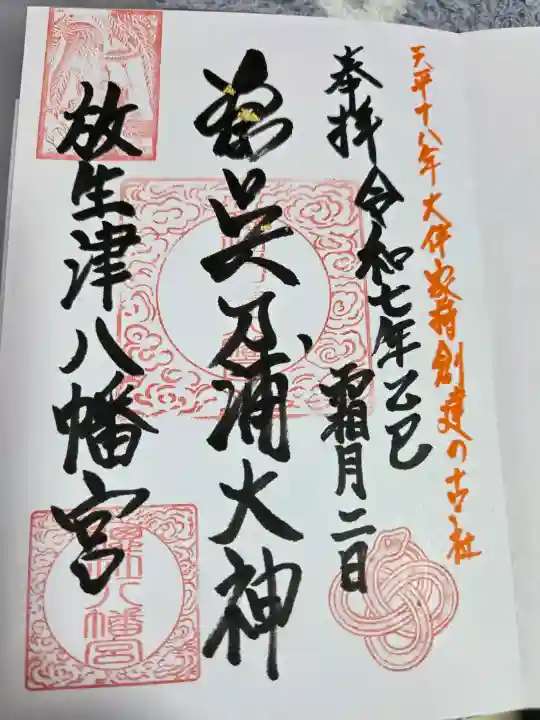 天平十八年大伴家持創建の古社
奉拝 令和七年乙巳
霜月二日
奈呉乃浦大神
放生津八幡宮
八幡宮